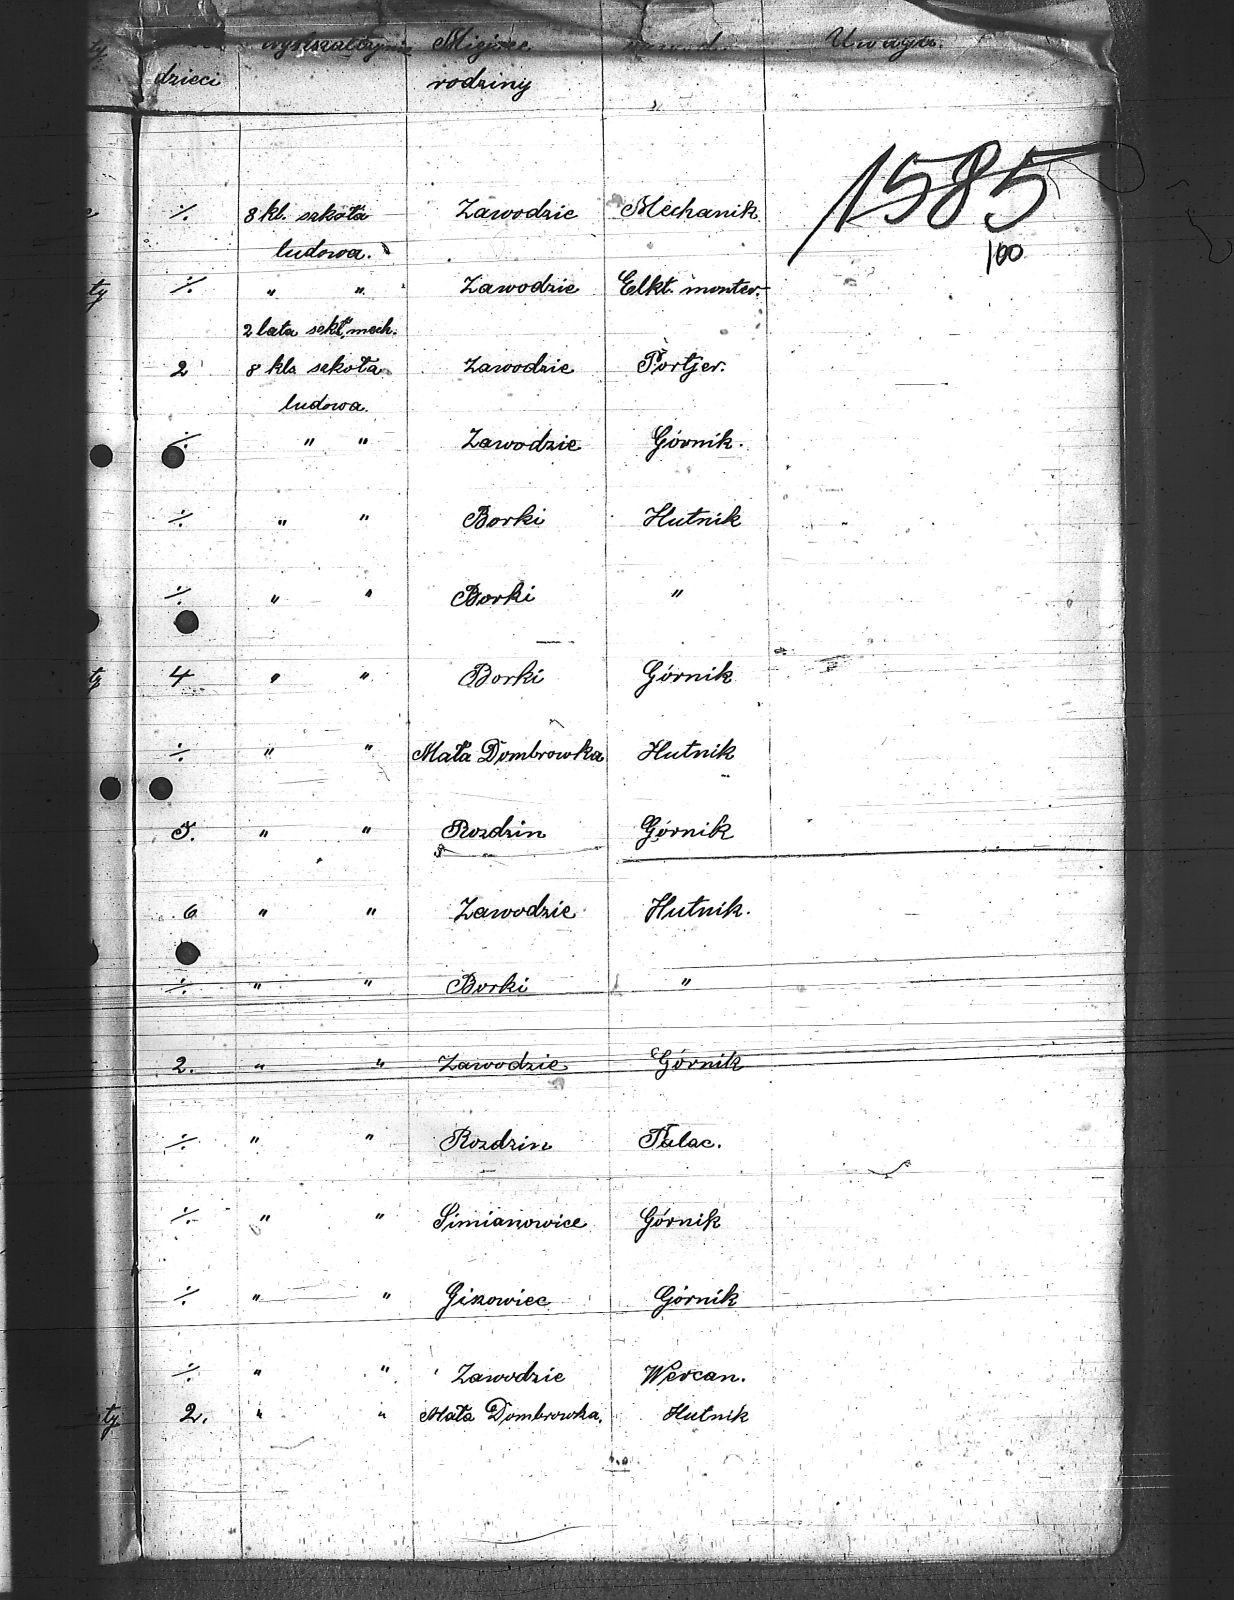 ty wykształcenie Miejsce zawód Uwagi.
dzieci rodziny
1585
100
e ·/. 8 kl. szkoła Zawodzie Mechanik
ludowa.
ty ·/. " " Zawodzie Elkt. monter.
2 lata szkł. mech.
2 8 kls szkoła Zawodzie Portjer.
ludowa.
·/. " " Zawodzie Górnik.
·/. " " Borki Hutnik
·/. " " Borki "
ty 4 " " Borki Górnik
·/. " " Mała Dombrowka Hutnik
5. " " Rozdzin Górnik
6 " " Zawodzie Hutnik.
·/. " " Borki "
2. " " Zawodzie Górnik
·/. " " Rozdzin Palac.
·/. " " Simianowice Górnik
·/. " " Giszowiec Górnik
·/. " " Zawodzie Wercan.
ty 2. " " Mała Dombrowka. Hutnik